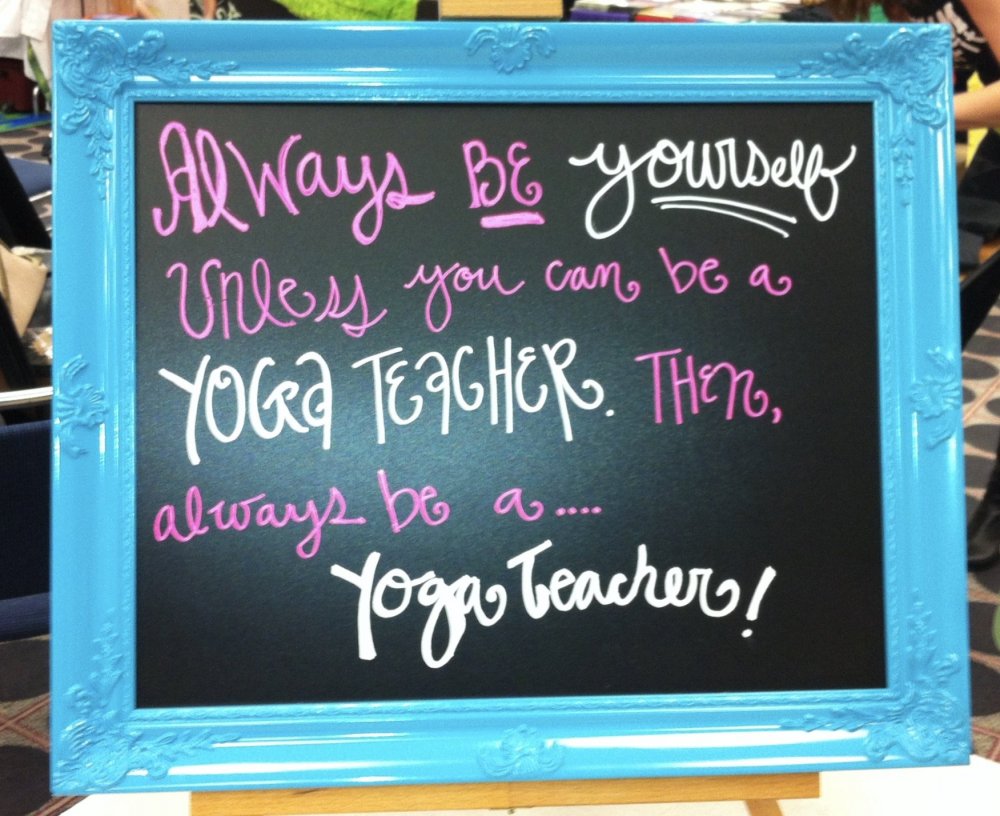 Always BE yourself
Unless you can be a
YOGA TEACHER. THEn,
always be a....
Yoga Teacher!